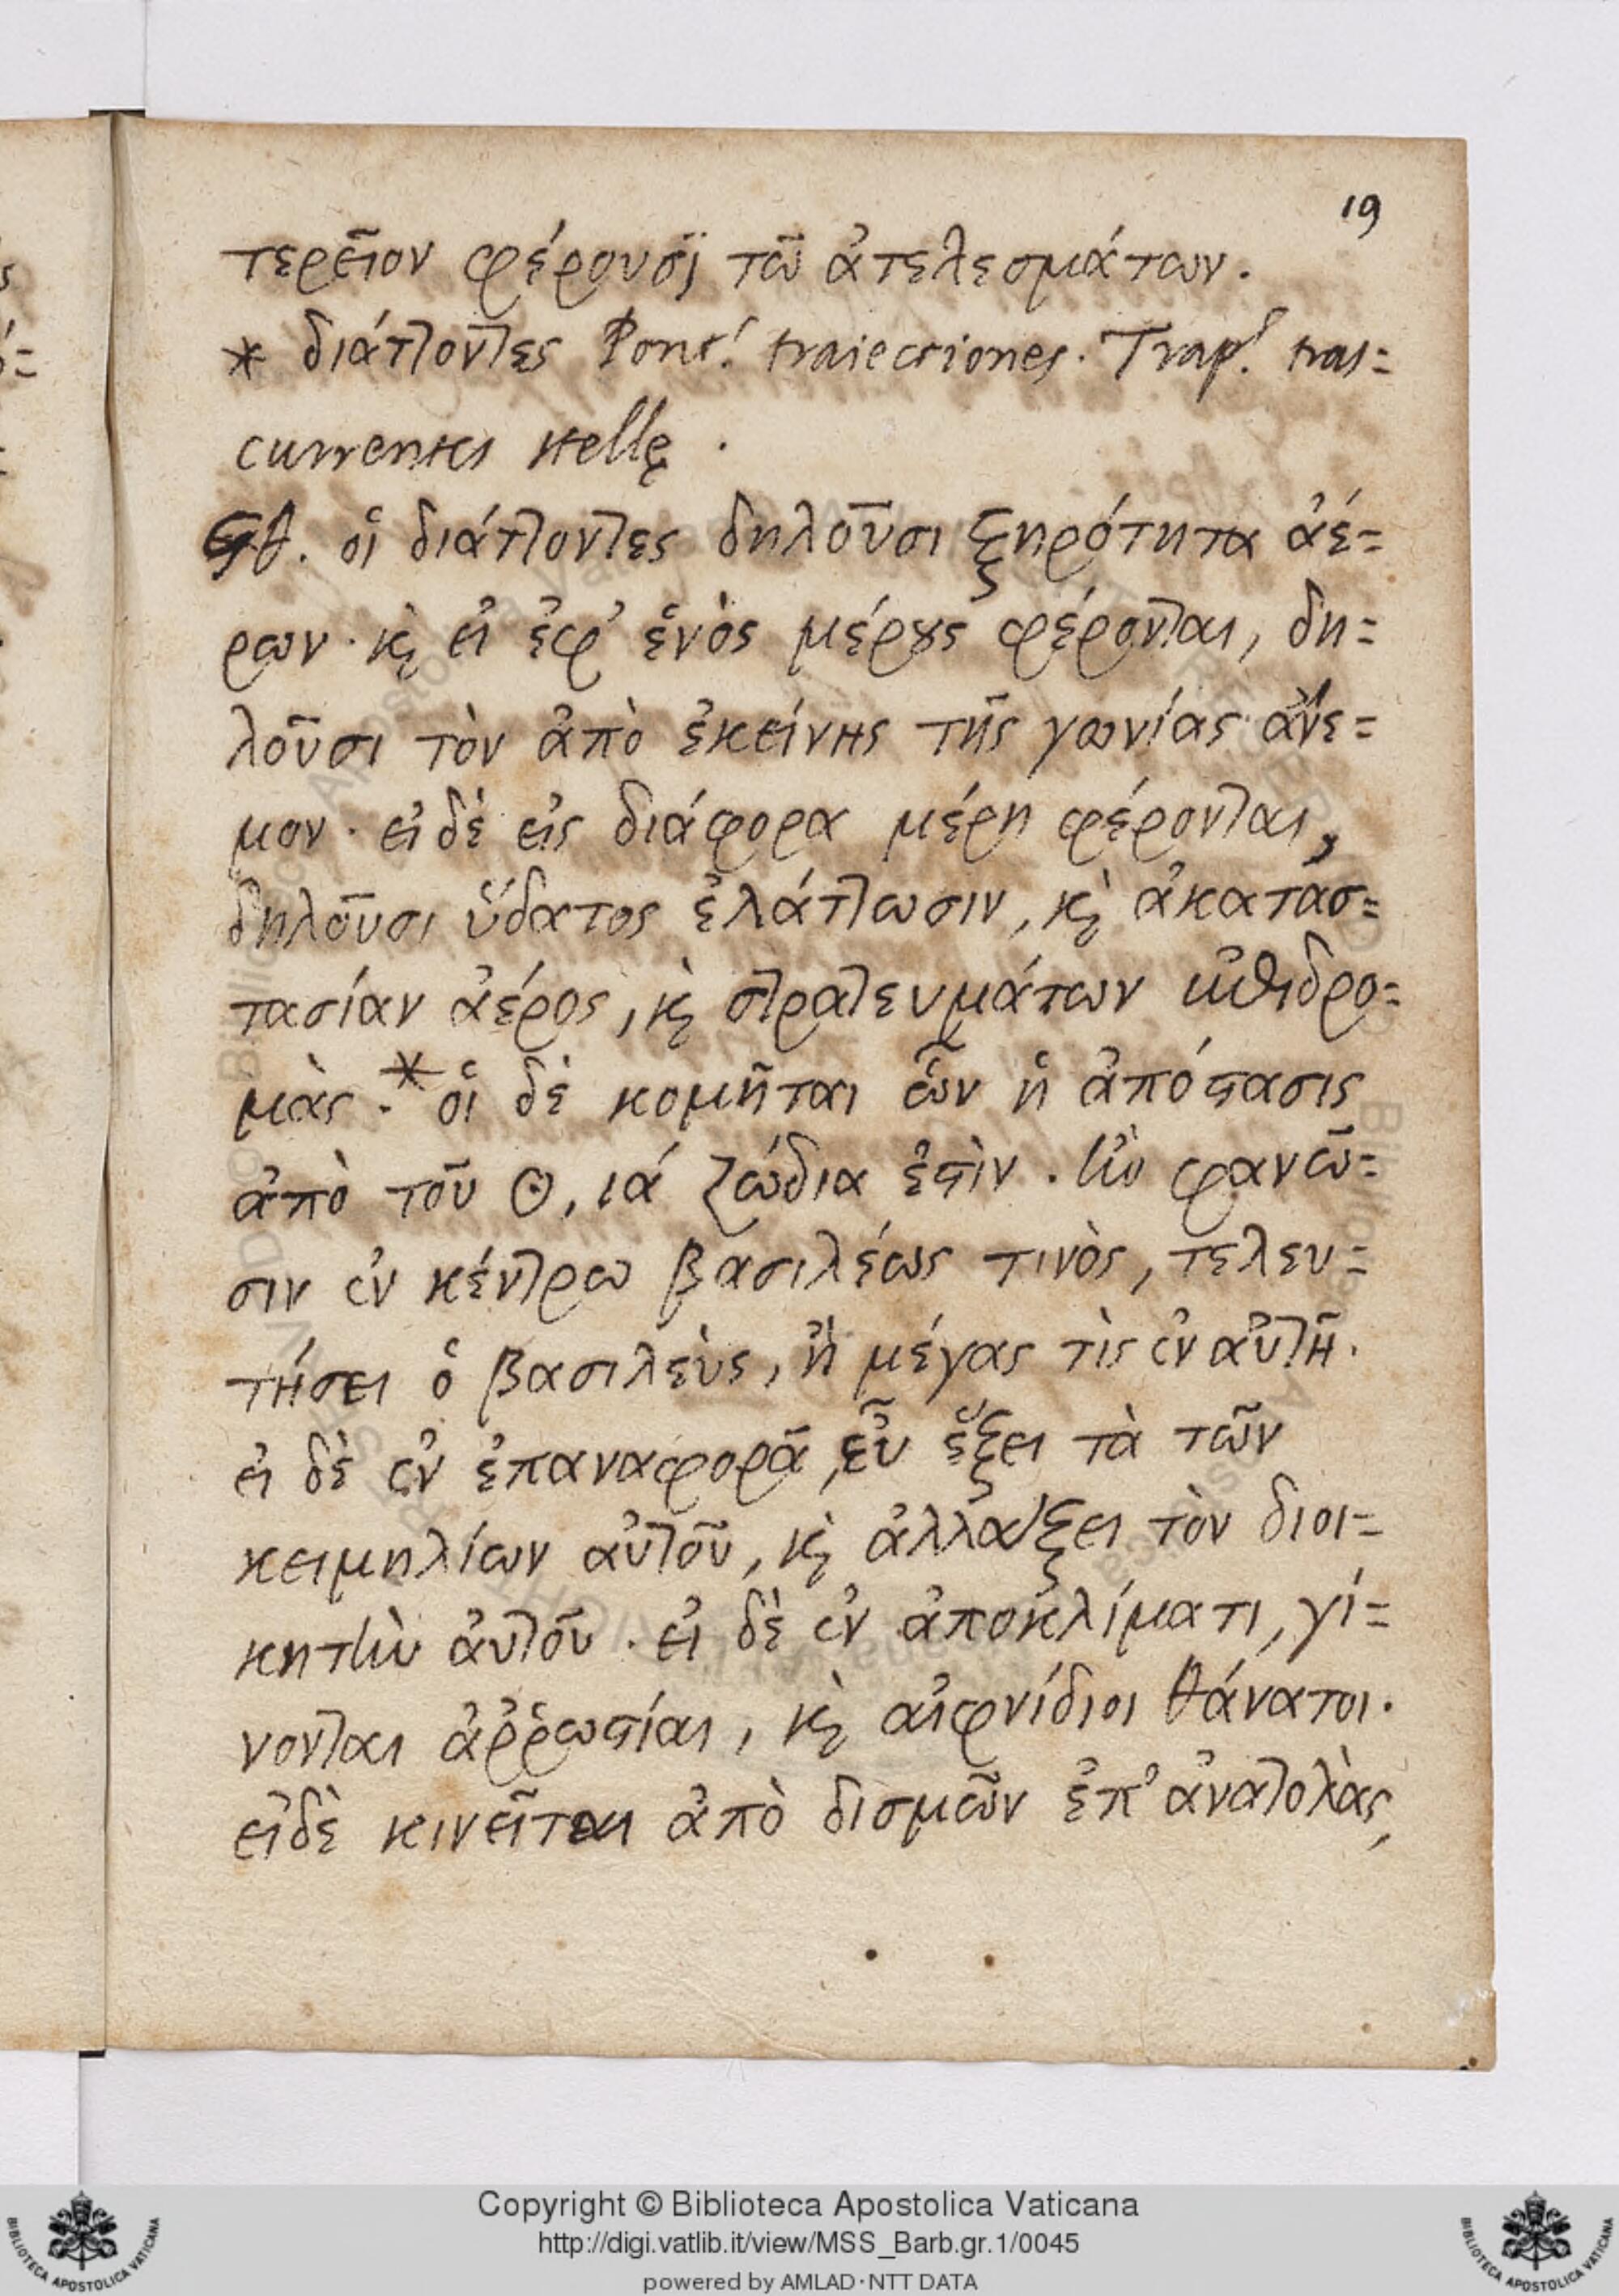 19
τερεῖον φέρουσϊ τῶ ἀτελεσμάτων.
* διάττοντες Pont. traiectiones. Trap. tras=
currentes stellę.
ϟθ. οἱ διάττοντες δηλοῦσι ξηρότητα ἀέ=
ρων. κὶ εἰ ἐφ' ἑνὸς μέρȣς φέρονται, δη=
λοῦσι τὸν ἀπὸ ἐκείνης τῆς γωνίας ἄνε=
μον. εἰ δὲ εἰς διάφορα μέρη φέρονται,
δηλοῦσι ὕδατος ἐλάττωσιν, κὶ ἀκατάσ=
τασίαν ἀέρος, κὶ στρατευμάτων
μὰς. * οἱ δὲ κομῆται ὧν ἡ ἀπόστασις
ἀπὸ τοῦ ☉, ιά ζώδια ἐστὶν. ἐὰν φανῶ=
σιν ἐν κέντρω βασιλέως τινὸς, τελευ=
τήσει ὁ βασιλεὺς, ἢ μέγας τὶς ἐν αὐτῆ.
εἰ δὲ ἐν ἐπαναφορᾶ, εὖ ἕξει τὰ τῶν
κειμηλίων αὐτοῦ, κὶ ἀλλάξει τὸν διοι=
κητὴν ἀυτοῦ. εἰ δὲ ἐν ἀποκλίματι, γί=
νονται ἀῤῥωστίαι, κὶ αἰφνίδιοι θάνατοι.
εἰ δὲ κινεῖται ἀπὸ δισμῶν ἐπ' ἀνατολὰς,
Copyright © Biblioteca Apostolica Vaticana
http://digi.vatlib.it/view/MSS_Barb.gr.1/0045
powered by AMLAD·NTT DATA
BIBLIOTECA APOSTOLICA VATICANA
BIBLIOTECA APOSTOLICA VATICANA